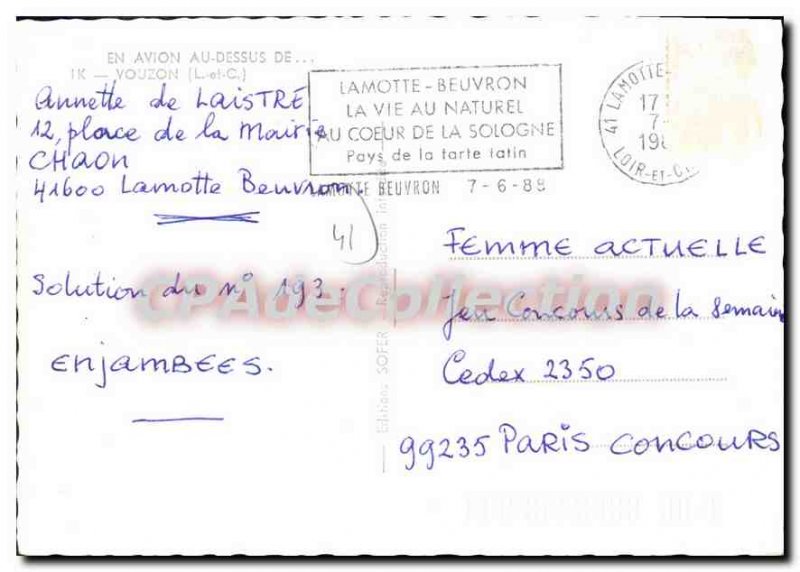 EN AVION AU-DESSUS DE...
1K — VOUZON (L.-et-C.)
Annette de LAISTRE
12, place de la Mairie
CHAON
41600 Lamotte Beuvron.
LAMOTTE-BEUVRON
LA VIE AU NATUREL
AU COEUR DE LA SOLOGNE
Pays de la tarte tatin
LAMOTTE BEUVRON 7-6-88
41 LAMOTTE-
17
7-
198
LOIR-ET-C
41
Solution du n° 193.
ENJAMBEES.
FEMME ACTUELLE
Jeu Concours de la Semaine
Cedex 2350
99235 PARIS CONCOURS
Editions SOFER - Reproduction
CPAdeCollection